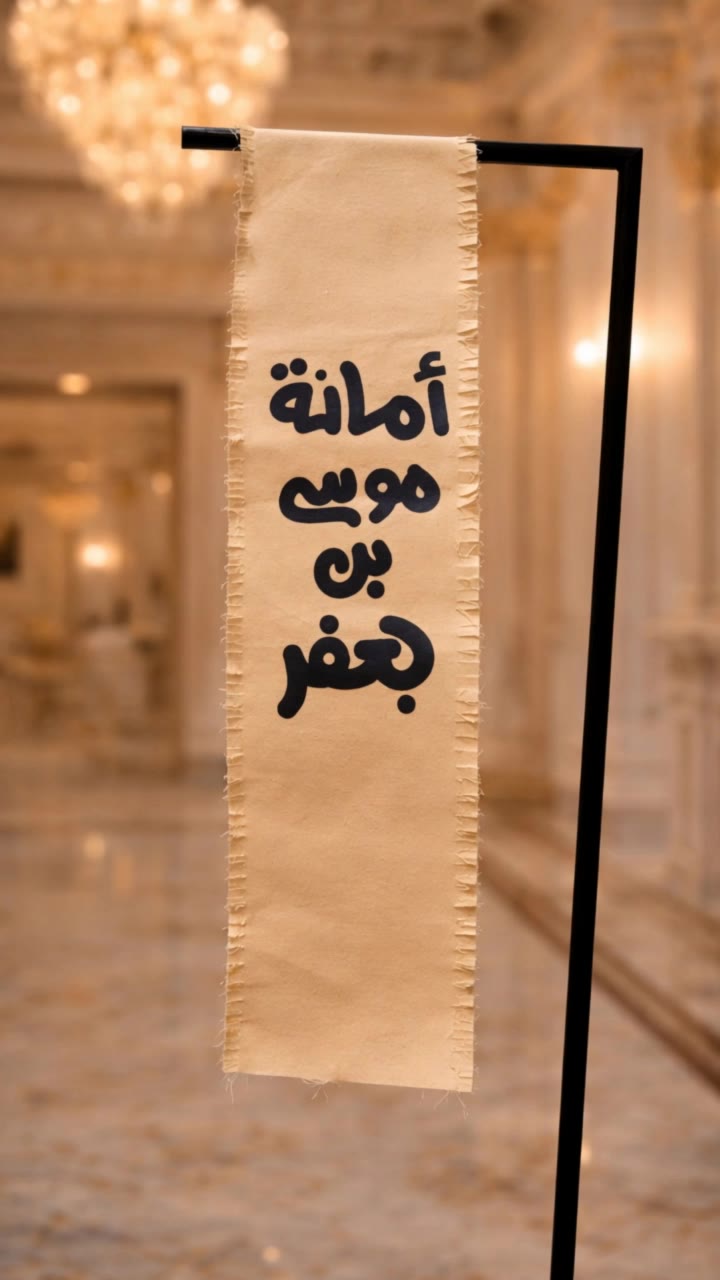 أمانة
موسى
بن
جعفر